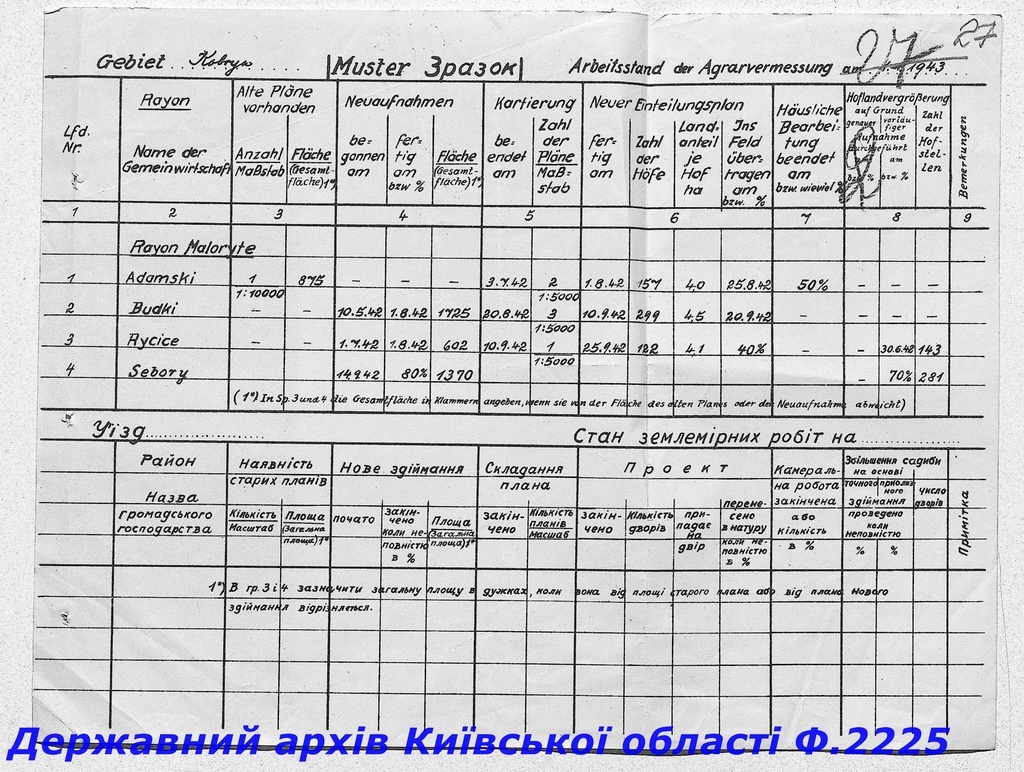 27
27
Gebiet .. Kobryn ........ |Muster Зразок| Arbeitsstand der Agrarvermessung am ... 1943...
Lfd. Nr.
Rayon
Name der Gemeinwirtschaft
Alte Pläne vorhanden
Anzahl
Maßstab
Fläche
(Gesamt-
fläche)1*)
Neuaufnahmen
be-
gonnen
am
fer-
tig
am
bzw %
Fläche
(Gesamt-
fläche)1*)
Kartierung
be-
endet
am
Zahl
der
Pläne
Maß-
stab
Neuer Einteilungsplan
fer-
tig
am
Zahl
der
Höfe
Land-
anteil
je
Hof
ha
Ins
Feld
über-
tragen
am
bzw. %
Häusliche
Bearbei-
tung
beendet
am
bzw. wieviel %
Hoflandvergrößerung
auf Grund
genauer vorläu-
figer
Aufnahme
durchgeführt
am
bzw % bzw %
Zahl
der
Hof-
stel-
len
Bemerkungen
1 2 3 4 5 6 7 8 9
Rayon Maloryte
1 Adamski 1 875 – – – 3.7.42 2 1.8.42 157 4,0 25.8.42 50% – – –
1:10000 1:5000
2 Budki – – 10.5.42 1.8.42 1725 20.8.42 3 10.9.42 299 4,5 20.9.42 – – – –
1:5000
3 Rycice – – 1.7.42 1.8.42 602 10.9.42 1 25.9.42 122 4,1 40% – – 30.6.42 143
1:5000
4 Sebory 14.9.42 80% 1370 – 70% 281
(1*) In Sp. 3 und 4 die Gesamtfläche in Klammern angeben, wenn sie von der Fläche des alten Planes oder der Neuaufnahme abweicht)
Уїзд................... Стан землемірних робіт на ...............
Район
Назва
громадського
господарства
Наявність
старих планів
Кількість
Масштаб
Площа
(Загальна
площа)1*
Нове здіймання
почато
закін-
чено
коли не-
повністю
в %
Площа
(Загальна
площа)1*
Складання
плана
закін-
чено
Кількість
планів
Масшаб
Проект
закін-
чено
Кількість
дворів
при-
падає
на
двір
перене-
сено
в натуру
коли не-
повністю
в %
Камераль-
на робота
закінчена
або
кількість
в %
Збільшення садиби
на основі
точного приближ-
ного
здіймання
проведено
коли
неповністю
% %
число
дворів
Примітка
1*) В гр. 3 і 4 зазначити загальну площу в дужках, коли вона від площі старого плана або від плана нового
здіймання відрізнлється.
Державний архів Київської області Ф.2225